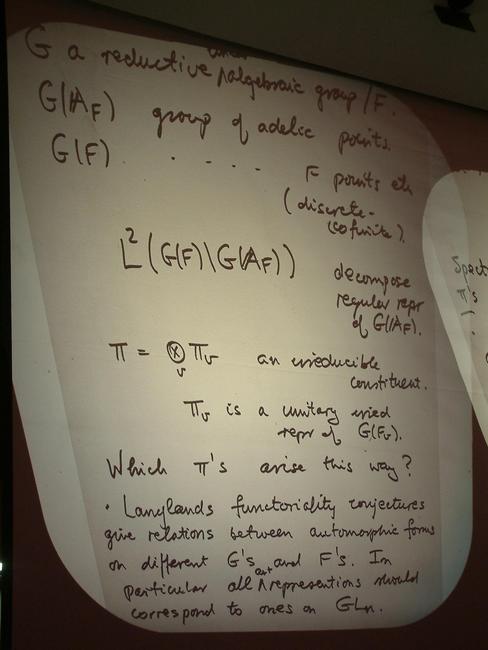 linear
G a reductive ∧algebraic group /F.
G(𝔸_F) group of adelic points.
G(F) . - - . F points etc
(discrete-
cofinite).
L²(G(F)\G(𝔸_F)) decompose
regular repr
of G(𝔸_F).
π = ⊗_v π_v an irreducible
constituent.
π_v is a unitary irred
repr of G(F_v).
Which π's arise this way?
· Langlands functoriality conjectures
give relations between automorphic forms
on different G's and F's. In
aut
particular all ∧ representions should
correspond to ones on GL_n.
Spect
π's